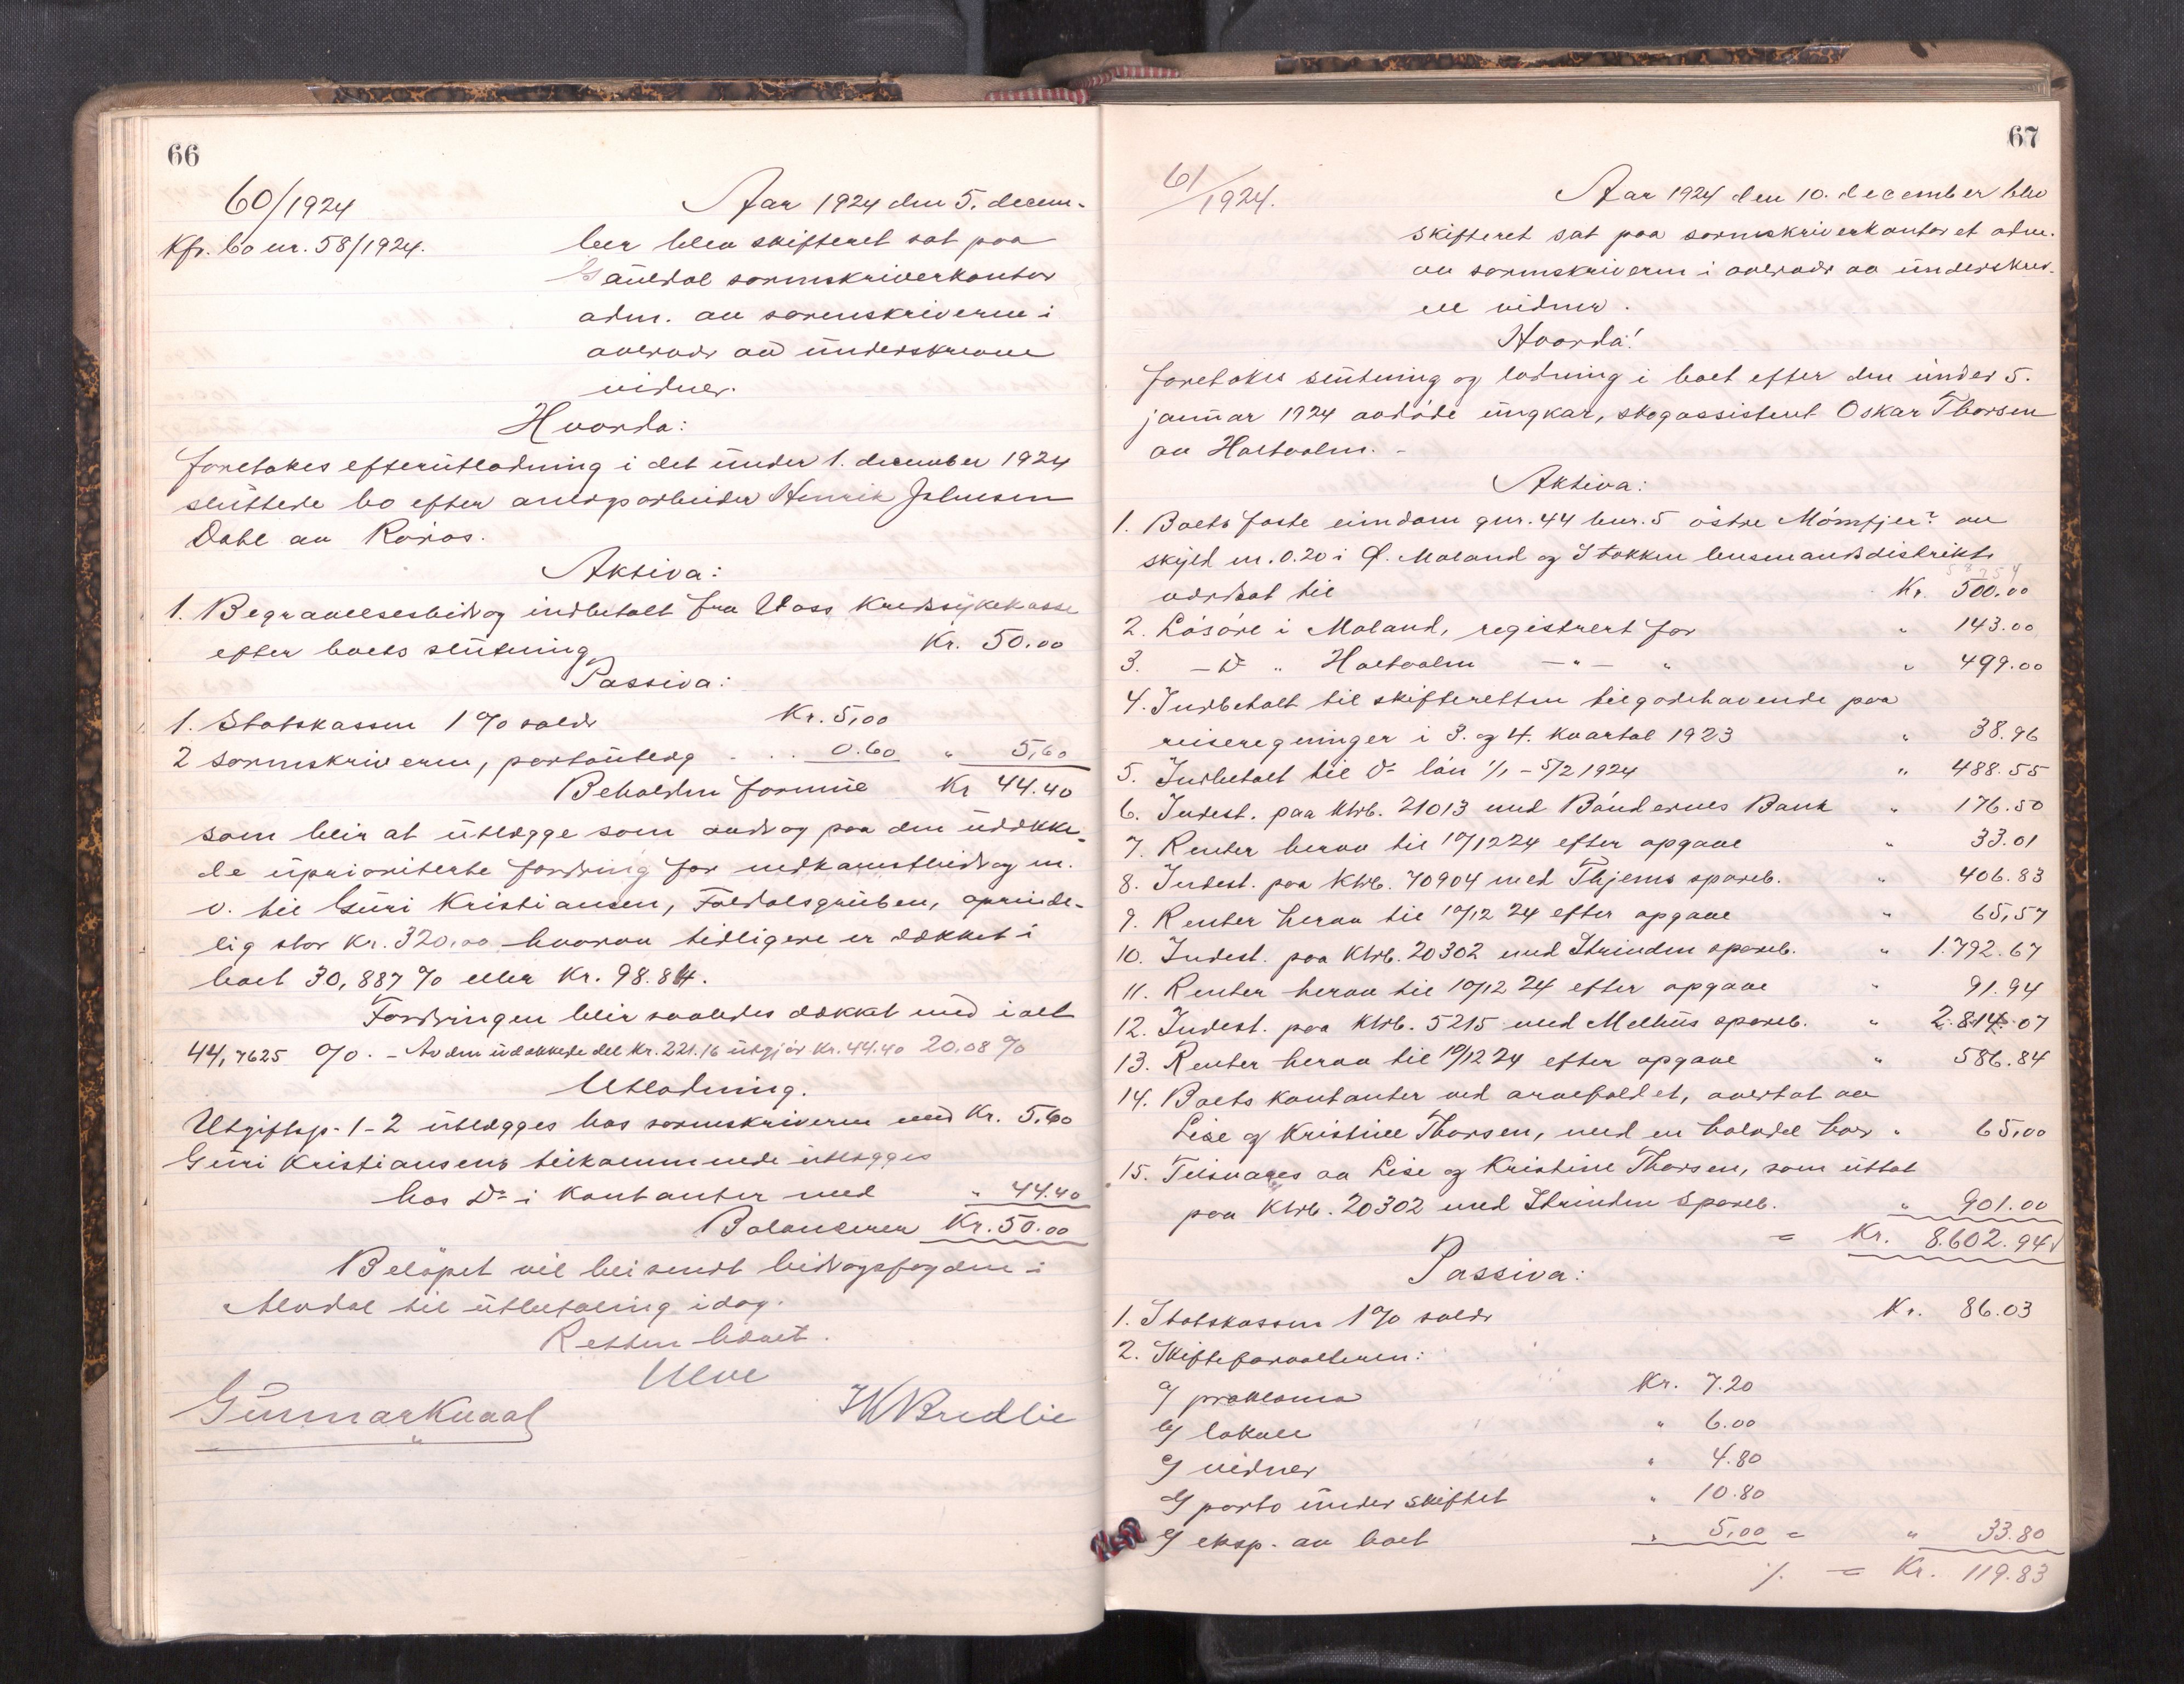 66
60/1924
Kfr. bo nr. 58/1924.
Aar 1924 den 5. decem-
ber blev skifteret sat paa
Gauldal sorenskriverkontor
adm. av sorenskriveren i
overvær av underskrevne
vidner.
Hvorda:
foretokes efterutlodning i det under 1. december 1924
sluttede bo efter anlægsarbeider Henrik Johnsen
Dahl av Røros.
Aktiva:
1. Begravelsesbidrag indbetalt fra Aass Kredssykekasse
efter boets slutning Kr. 50.00
Passiva:
1. Statskassen 1 % soldr Kr. 5,00
2 sorenskriveren, portoutlæg . . . 0.60 " 5,60
Beholden formue Kr 44.40
som blir at utlægge som avdrag paa den udække-
de uprioriterte fordring for nedkomstbidrag m.
v. til Guri Kristiansen, Foldalsgruben, oprinde-
lig stor Kr. 320,00 hvorav tidligere er dækket i
boet 30,887 % eller Kr. 98.84.
Fordringen blir saaledes dækket med ialt
44,7625 %. - Av den udækkede del Kr. 221.16 utgjør Kr. 44.40 20.08 %
Utlodning.
Utgiftsp. 1-2 utlægges hos sorenskriveren med Kr. 5,60
Guri Kristiansens tilkommende utlægges
hos Do i kontanter med " 44.40
Balanserer Kr. 50.00
Beløpet vil bli sendt bidragsfogden i
Alvdal til utbetaling idag.
Retten hævet.
Ulve
Gunnar Kvaal
67
61/1924.
Aar 1924 den 10. december blev
skifteret sat paa sorenskriverkontoret adm.
av sorenskriveren i overvær av underskrev-
ne vidner.
Hvorda!
foretokes slutning og lodning i boet efter den under 5.
januar 1924 avdøde ungkar, skogassistent Oskar Thorsen
av Holtaalen. -
Aktiva:
1. Boets faste eiendom gnr. 44 bnr. 5 østre av
skyld m. 0.20 i Ø. Moland og Stokken lensmandsdistrikt
værdsat til Kr. 500.00
2. Løsøre i Moland, registrert for " 143.00
3. - Do " Holtaalen - " - " " 499.00
4. Indbetalt til skifteretten tilgodehavende paa
reiseregninger i 3. og 4. kvartal 1923 " 38.96
5. Indbetalt til Do løn 1/1 - 5/2 1924 " 488.55
6. Indest. paa Ktrb. 21013 med Bøndernes Bank " 176.50
7. Renter herav til 10/12 24 efter opgave " 33.01
8. Indest. paa Ktrb. 70904 med Thjems spareb. " 406.83
9. Renter herav til 10/12 24 efter opgave " 65,57
10. Indest. paa Ktrb. 20302 med Strinden spareb. " 1.792.67
11. Renter herav til 10/12 24 efter opgave " 91.94
12. Indest. paa Ktrb. 5215 med Melhus spareb. " 2.814.07
13. Renter herav til 10/12 24 efter opgave " 586.84
14. Boets kontanter ved arvefaldet, overtat av
Lise og Kristine Thorsen, med en halvdel hver " 65,00
15. Tilsvares av Lise og Kristine Thorsen, som uttat
paa Ktrb. 20302 med Strinden Spareb. " 901.00
= Kr. 8.602.94
Passiva:
1. Statskassen 1 % soldr Kr. 86.03
2. Skifteforvalteren:
a/ proklama Kr. 7.20
b/ lokale " 6.00
c/ vidner " 4.80
d/ porto under skiftet " 10.80
e/ eksp. av boet " 5,00 = " 33.80
/. = Kr. 119.83